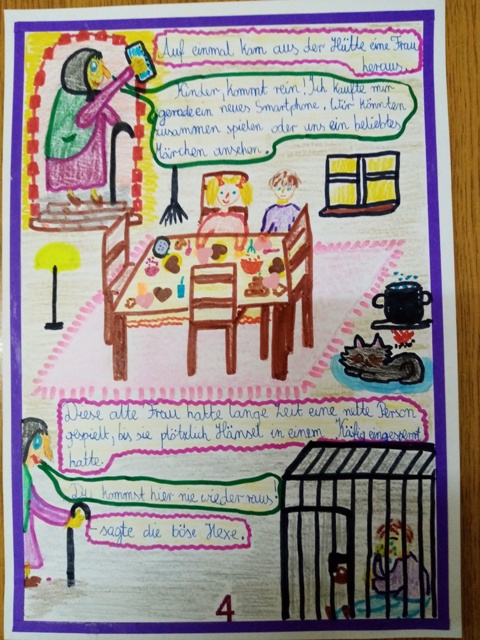 Auf einmal kam aus der Hütte eine Frau
heraus.
Kinder, kommt rein! Ich kaufte mir
gerade ein neues Smartphone. Wir könnten
zusammen spielen oder uns ein beliebtes
Märchen ansehen.
Diese alte Frau hatte lange Zeit eine nette Person
gespielt, bis sie plötzlich Hänsel in einem Käfig eingesperrt
hatte.
Du kommst hier nie wieder raus!
sagte die böse Hexe.
4